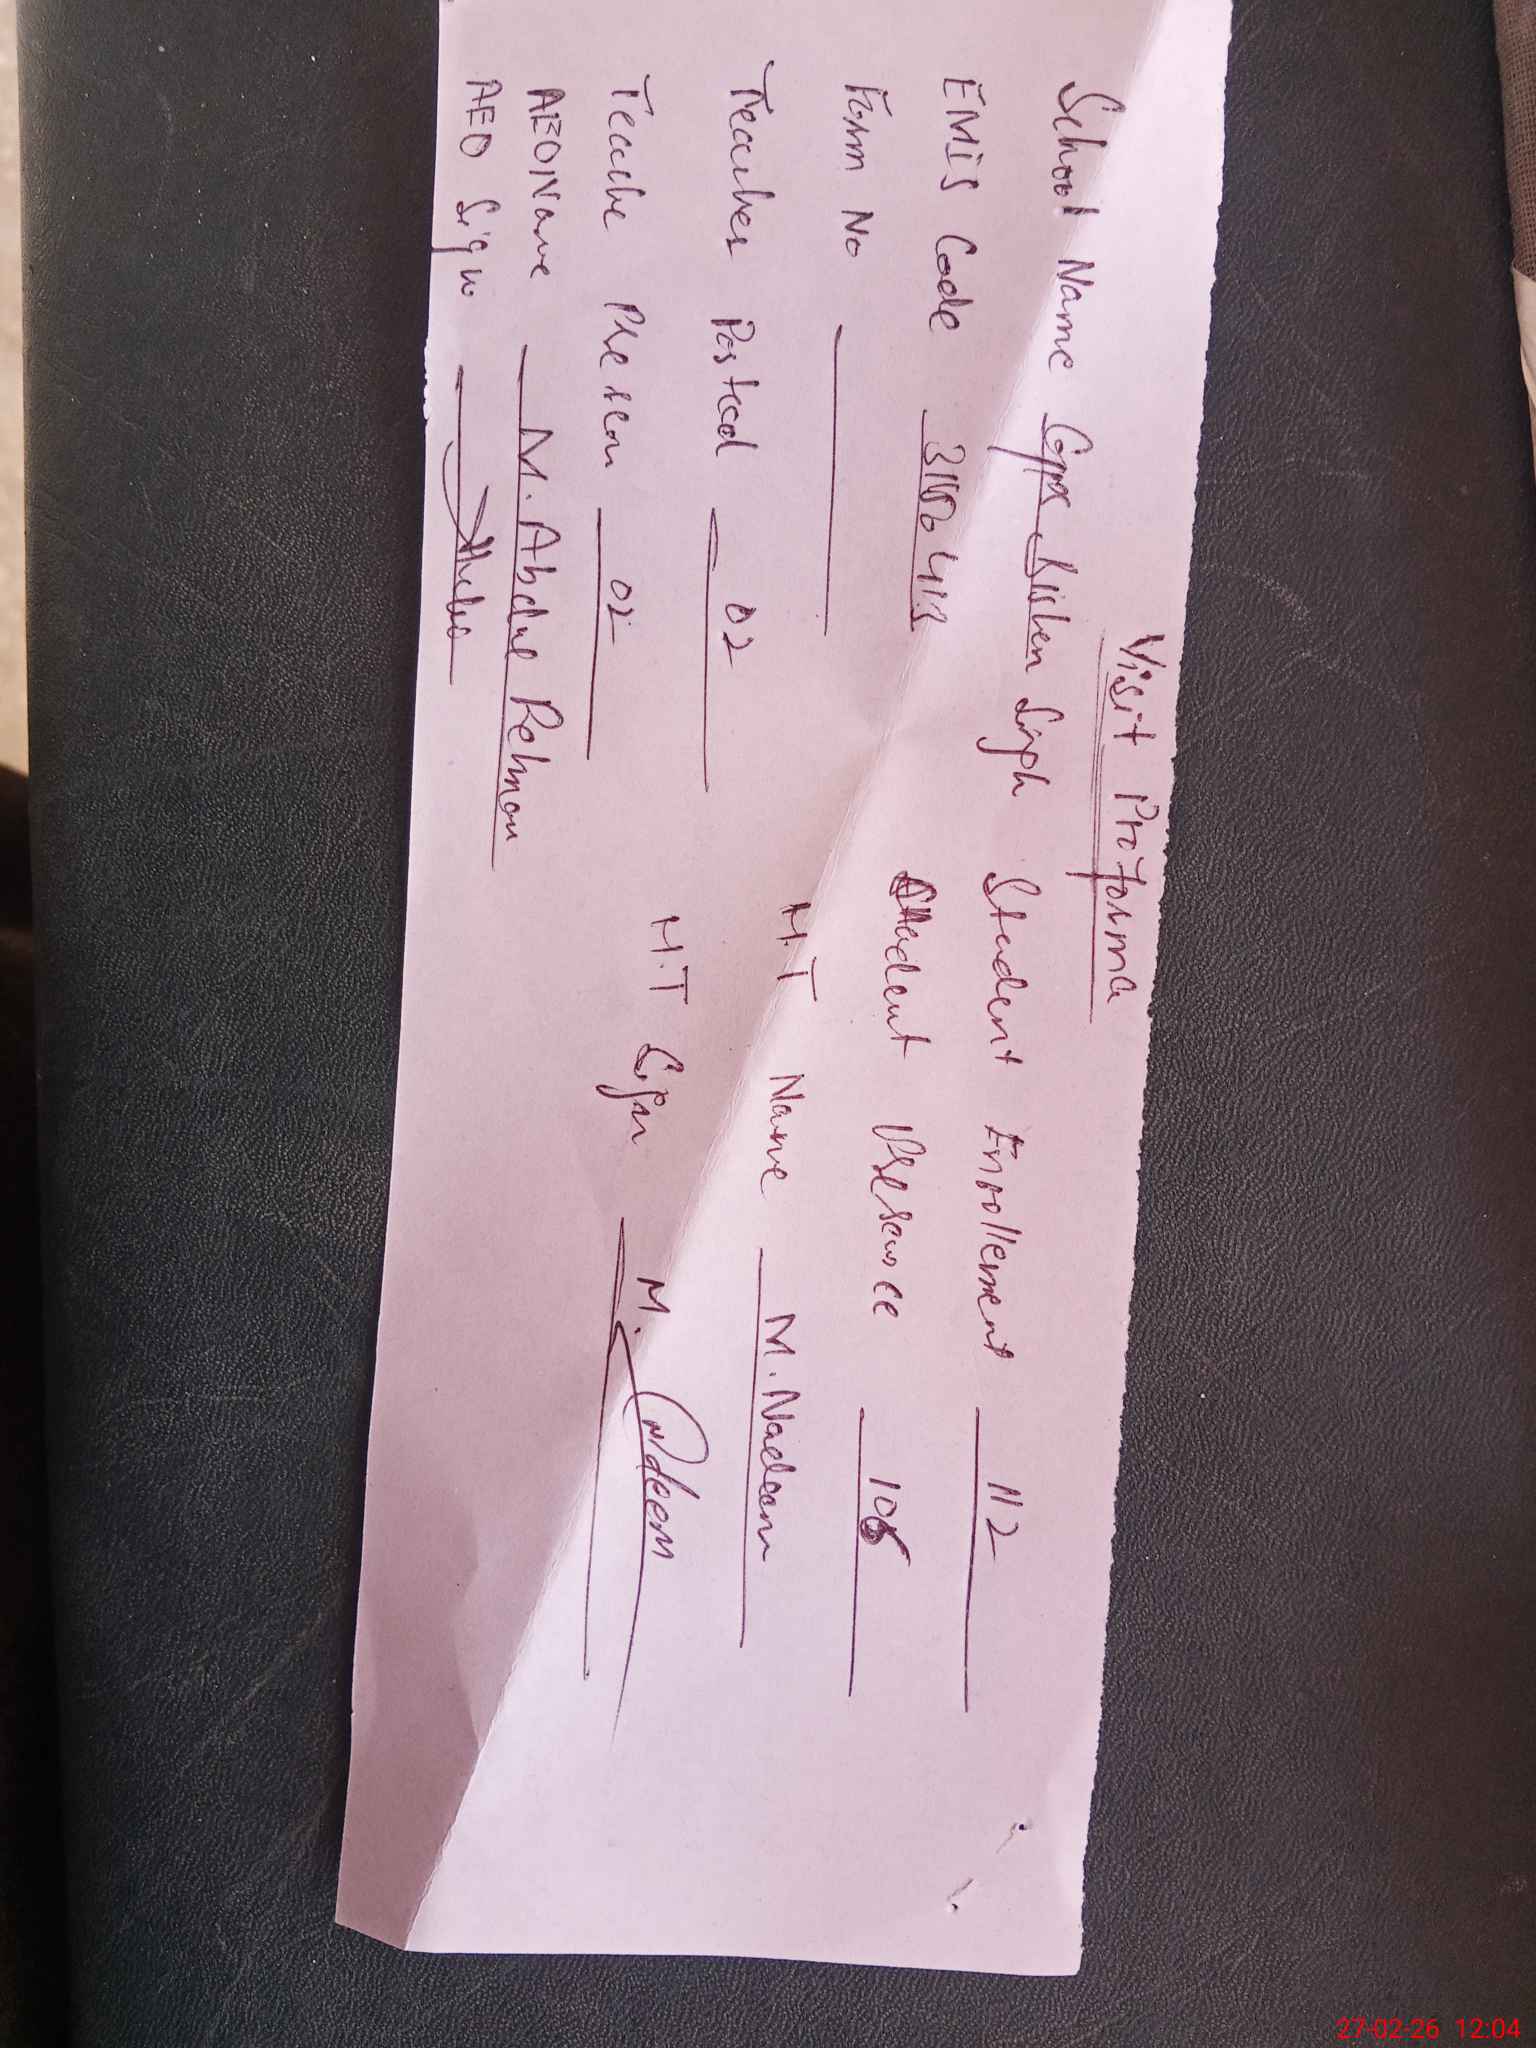 Visit Proforma
School Name Gps Bishen Singh Student Enrollement 112
EMIS Code Student Presence 106
Form No
Teacher Posted 02 H.T Name M. Nadeem
Teache Presen 02 H.T Sign M. Nadeem
AEO Name M. Abdul Rehman
AEO Sign
27-02-26 12:04